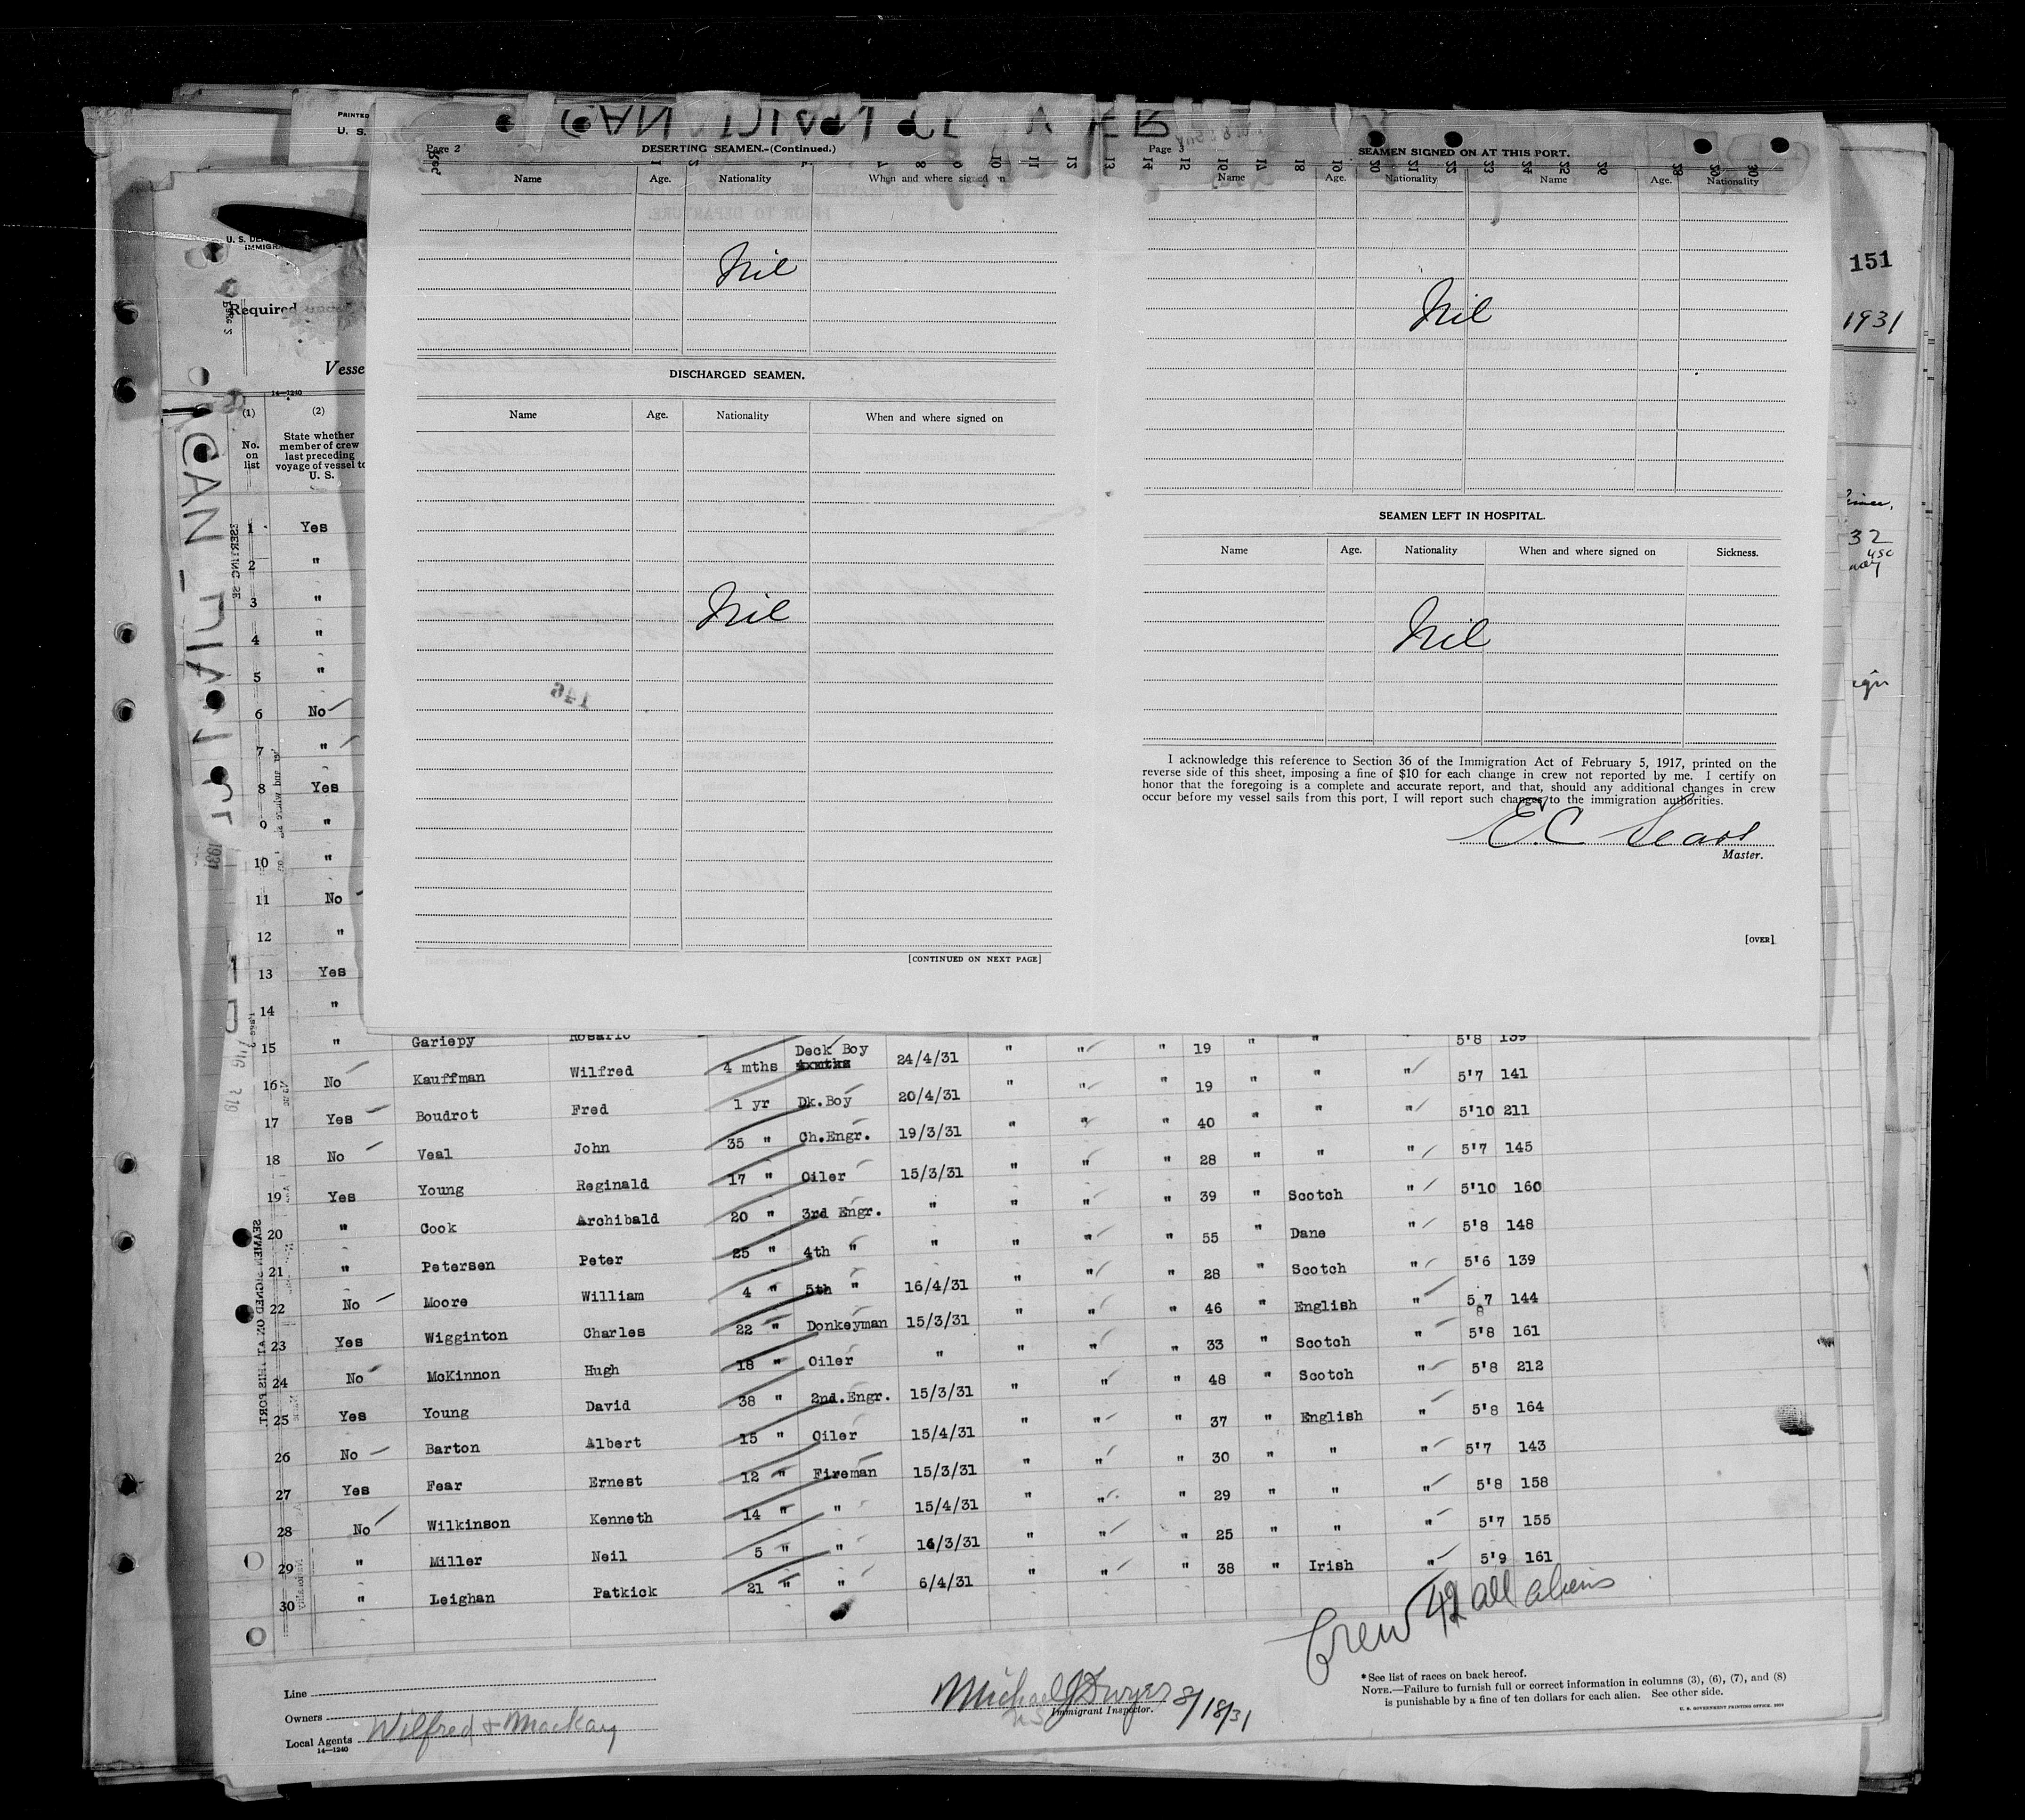 PRINTED
U. S.
Page 2
DESERTING SEAMEN.-(Continued.)
Name Age. Nationality When and where signed on
Nil
DISCHARGED SEAMEN.
Name Age. Nationality When and where signed on
Nil
146
[CONTINUED ON NEXT PAGE]
Page 3
SEAMEN SIGNED ON AT THIS PORT.
Name Age. Nationality Name Age. Nationality
Nil
SEAMEN LEFT IN HOSPITAL.
Name Age. Nationality When and where signed on Sickness.
Nil
I acknowledge this reference to Section 36 of the Immigration Act of February 5, 1917, printed on the
reverse side of this sheet, imposing a fine of $10 for each change in crew not reported by me. I certify on
honor that the foregoing is a complete and accurate report, and that, should any additional changes in crew
occur before my vessel sails from this port, I will report such changes to the immigration authorities.
E.C. Sears
Master.
[OVER]
151
1931
32
Required
Vesse
14—1240
(1) (2)
No. on list
State whether
member of crew
last preceding
voyage of vessel to
U. S.
1 Yes
2 "
3 "
4 "
5 "
6 No
7 "
8 Yes
9 "
10 "
11 No
12 "
13 Yes
14 "
15 " Gariepy Rosario Deck Boy 24/4/31 " " " 19 " " " 5'8 139
16 No Kauffman Wilfred 4 mths Dk.Boy 20/4/31 " " " 19 " " " 5'7 141
17 Yes Boudrot Fred 1 yr Ch.Engr. 19/3/31 " " " 40 " " " 5'10 211
18 No Veal John 35 " Oiler 15/3/31 " " " 28 " " " 5'7 145
19 Yes Young Reginald 17 " 3rd Engr. " " " " 39 " Scotch " 5'10 160
20 " Cook Archibald 20 " 4th " " " " " 55 " Dane " 5'8 148
21 " Petersen Peter 25 " 5th " 16/4/31 " " " 28 " Scotch " 5'6 139
22 No Moore William 4 " Donkeyman 15/3/31 " " " 46 " English " 5'7 144
23 Yes Wigginton Charles 22 " Oiler " " " " 33 " Scotch " 5'8 161
24 No McKinnon Hugh 18 " 2nd.Engr. 15/3/31 " " " 48 " Scotch " 5'8 212
25 Yes Young David 38 " Oiler 15/4/31 " " " 37 " English " 5'8 164
26 No Barton Albert 15 " Fireman 15/3/31 " " " 30 " " " 5'7 143
27 Yes Fear Ernest 12 " " 15/4/31 " " " 29 " " " 5'8 158
28 No Wilkinson Kenneth 14 " " 14/3/31 " " " 25 " " " 5'7 155
29 " Miller Neil 5 " " 6/4/31 " " " 38 " Irish " 5'9 161
30 " Leighan Patkick 21 "
Crew 42 all aliens
Line
Owners
Local Agents Wilfred & Mackay
14—1240
Michael J Dwyer 8/18/31
Immigrant Inspector.
*See list of races on back hereof.
NOTE.—Failure to furnish full or correct information in columns (3), (6), (7), and (8)
is punishable by a fine of ten dollars for each alien. See other side.
U. S. GOVERNMENT PRINTING OFFICE